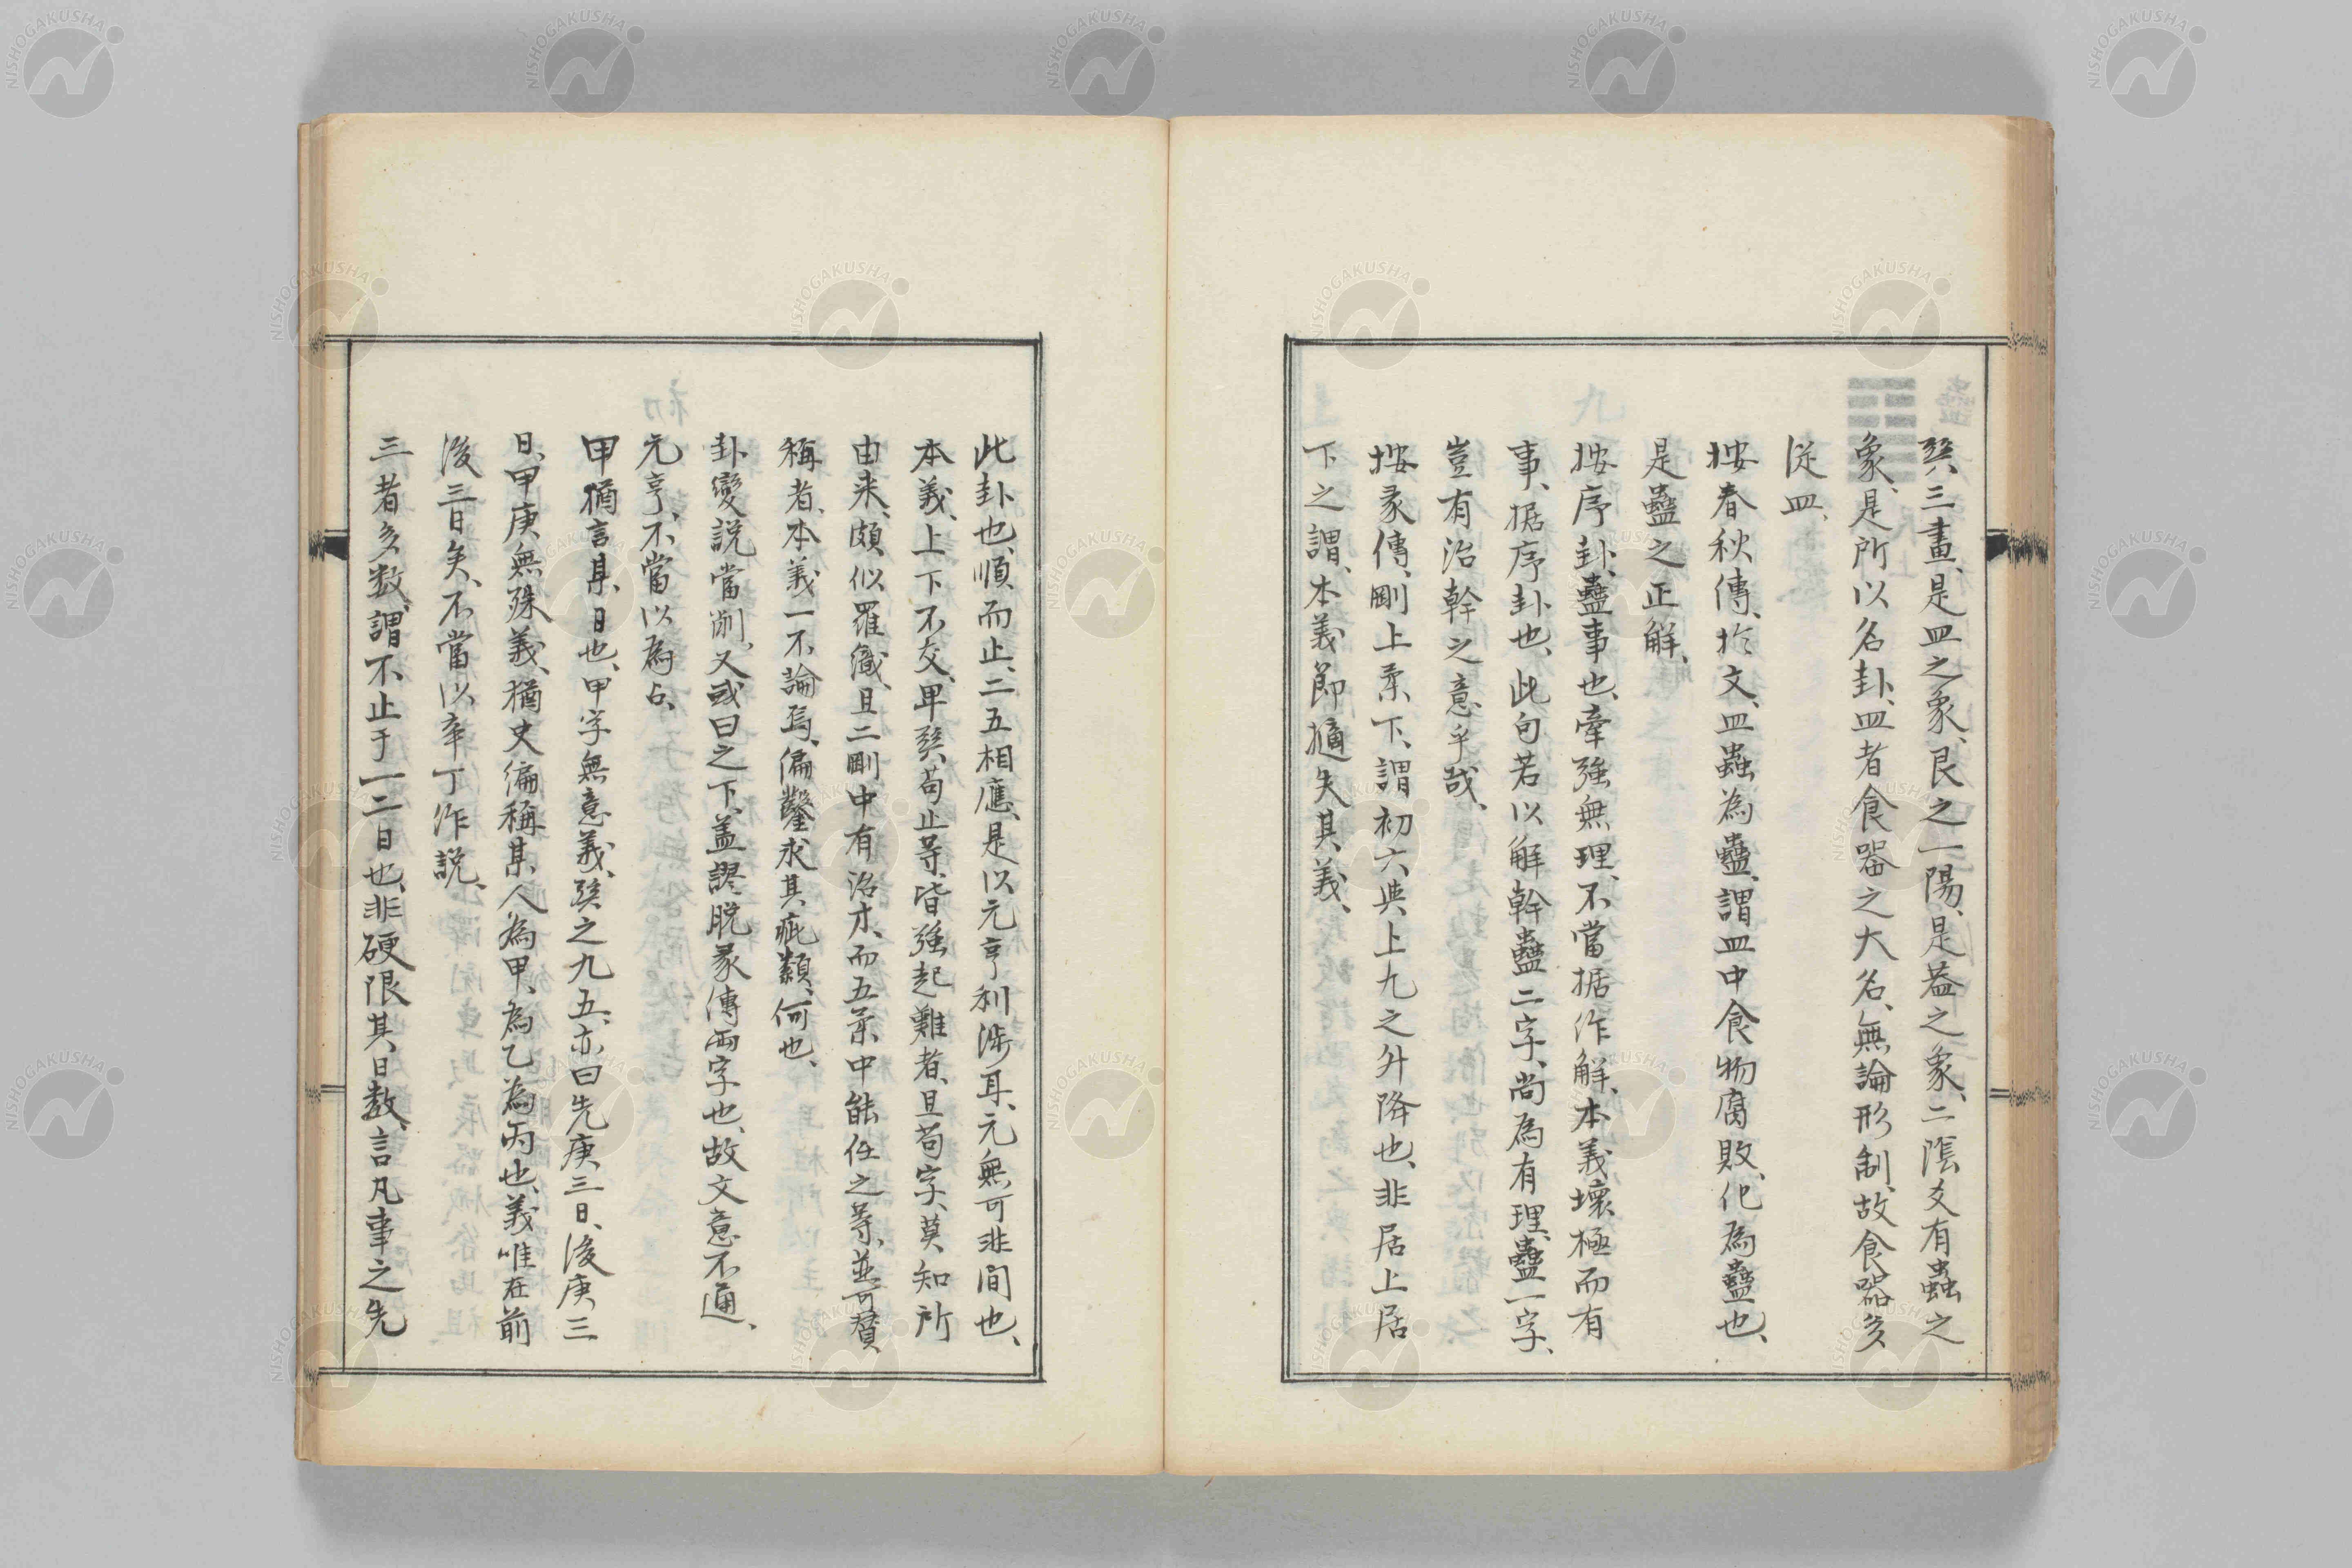 巽三畫、是皿之象、艮之一陽、是蓋之象、二陰爻有蟲之
象、是所以名卦、皿者食器之大名、無論形制、故食器多
從皿、
按春秋傳、於文、皿蟲為蠱、謂皿中食物腐敗、化為蠱也、
是蠱之正解、
按序卦、蠱事也、牽強無理、不當據作解、本義壞極而有
事、据序卦也、此句若以解幹蠱二字、尚為有理、蠱一字、
豈有治幹之意乎哉、
按彖傳、剛上柔下、謂初六與上九之升降也、非居上居
下之謂、本義節摘失其義、
此卦也、順而止、二五相應、是以元亨利涉耳、元無可非間也、
本義、上下不交、卑巽、苟止等、皆強起難者、且苟字、莫知所
由来、頗似羅織、且二剛中有治才、而五柔中能任之等、並可賛
稱者、本義一不論焉、偏鑿求其疵纇、何也、
卦變説當削、又或曰之下、蓋謬脱彖傳兩字也、故文意不通、
元亨、不當以為占、
甲猶言某日也、甲字無意義、巽之九五、亦曰先庚三日、後庚三
日、甲庚無殊義、猶史偏稱某人為甲、為乙為丙也、義唯在前
後三日矣、不當以辛丁作説、
三者多数、謂不止于一二日也、非硬限其日数、言凡事之先
NISHOGAKUSHA